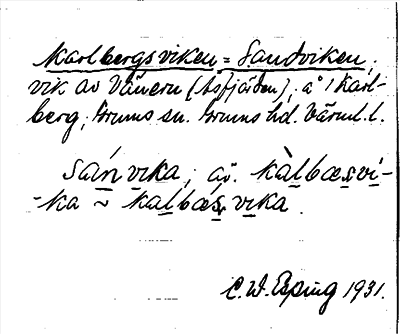 Karlbergsviken = Sandviken,
vik av Vänern (Åsfjorden), å 1 Karl-
berg, Grums sn. Grums hd. Värml. l.
Sánvika, äv. kàlbæsvi-
-ka ~ kalbǽsvika
C. W. Esping 1931.